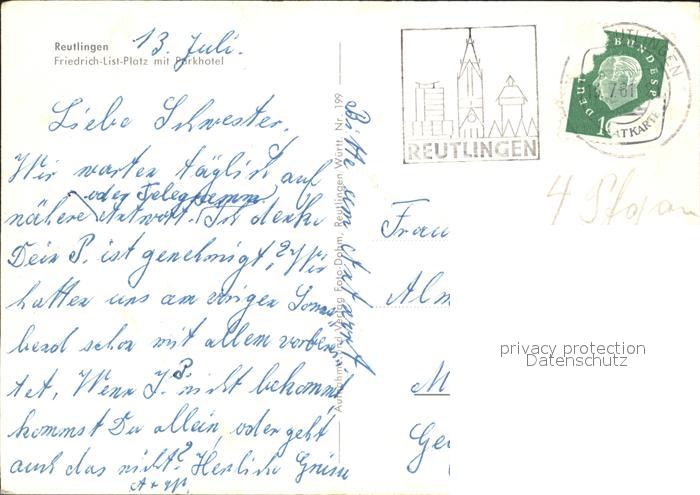 Reutlingen
Friedrich-List-Platz mit Parkhotel
13. Juli.
Liebe Schwester.
Wir warten täglich auf
oder Telegramm
nähere Antwort. Ich denke
Dein P. ist genehmigt? Wir
hatten uns am vorigen Sonna
bend schon mit allem vorberei
tet, Wenn J. P. nicht bekommt
kommst Du allein, oder geht
auch das nicht? Herzliche Grüsse
A + W.
Bitte um Antwort
Aufnahme und Verlag Foto-Dohm, Reutlingen Württ. Nr. 199
REUTLINGEN
REUTLINGEN
13.7.61
DEUTSCHE BUNDESP
10
4 Pfg
Frau
Alm
M
Ge
privacy protection
Datenschutz